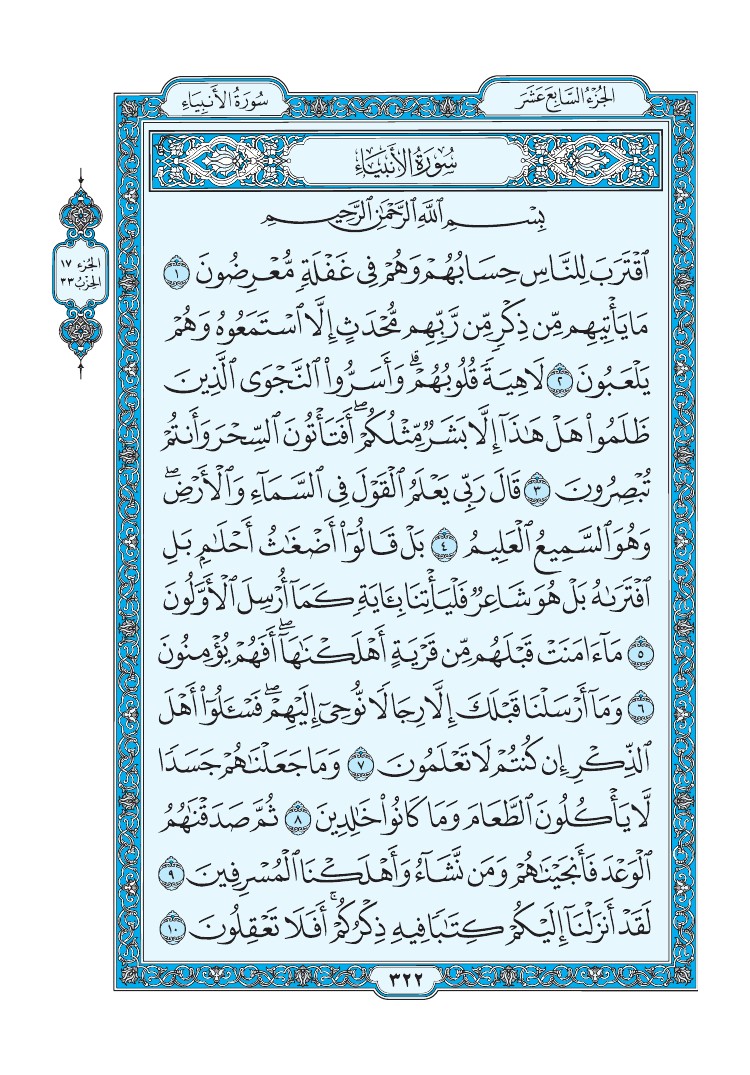 الجزء السابع عشر
سورة الأنبياء
سُورَةُ الأَنبيَاءِ
بِسْمِ ٱللَّهِ ٱلرَّحْمَٰنِ ٱلرَّحِيمِ
الجزء ١٧
الحزب ٣٣
ٱقْتَرَبَ لِلنَّاسِ حِسَابُهُمْ وَهُمْ فِى غَفْلَةٍ مُّعْرِضُونَ ١
مَا يَأْتِيهِم مِّن ذِكْرٍ مِّن رَّبِّهِم مُّحْدَثٍ إِلَّا ٱسْتَمَعُوهُ وَهُمْ
يَلْعَبُونَ ٢ لَاهِيَةً قُلُوبُهُمْ ۗ وَأَسَرُّوا۟ ٱلنَّجْوَى ٱلَّذِينَ
ظَلَمُوا۟ هَلْ هَٰذَآ إِلَّا بَشَرٌ مِّثْلُكُمْ ۖ أَفَتَأْتُونَ ٱلسِّحْرَ وَأَنتُمْ
تُبْصِرُونَ ٣ قَالَ رَبِّى يَعْلَمُ ٱلْقَوْلَ فِى ٱلسَّمَآءِ وَٱلْأَرْضِ ۖ
وَهُوَ ٱلسَّمِيعُ ٱلْعَلِيمُ ٤ بَلْ قَالُوٓا۟ أَضْغَٰثُ أَحْلَٰمٍ بَلِ
ٱفْتَرَىٰهُ بَلْ هُوَ شَاعِرٌ فَلْيَأْتِنَا بِـَٔايَةٍ كَمَآ أُرْسِلَ ٱلْأَوَّلُونَ
٥ مَآ ءَامَنَتْ قَبْلَهُم مِّن قَرْيَةٍ أَهْلَكْنَٰهَآ ۖ أَفَهُمْ يُؤْمِنُونَ
٦ وَمَآ أَرْسَلْنَا قَبْلَكَ إِلَّا رِجَالًا نُّوحِىٓ إِلَيْهِمْ ۖ فَسْـَٔلُوٓا۟ أَهْلَ
ٱلذِّكْرِ إِن كُنتُمْ لَا تَعْلَمُونَ ٧ وَمَا جَعَلْنَٰهُمْ جَسَدًا
لَّا يَأْكُلُونَ ٱلطَّعَامَ وَمَا كَانُوا۟ خَٰلِدِينَ ٨ ثُمَّ صَدَقْنَٰهُمُ
ٱلْوَعْدَ فَأَنجَيْنَٰهُمْ وَمَن نَّشَآءُ وَأَهْلَكْنَا ٱلْمُسْرِفِينَ ٩
لَقَدْ أَنزَلْنَآ إِلَيْكُمْ كِتَٰبًا فِيهِ ذِكْرُكُمْ ۖ أَفَلَا تَعْقِلُونَ ١٠
٣٢٢